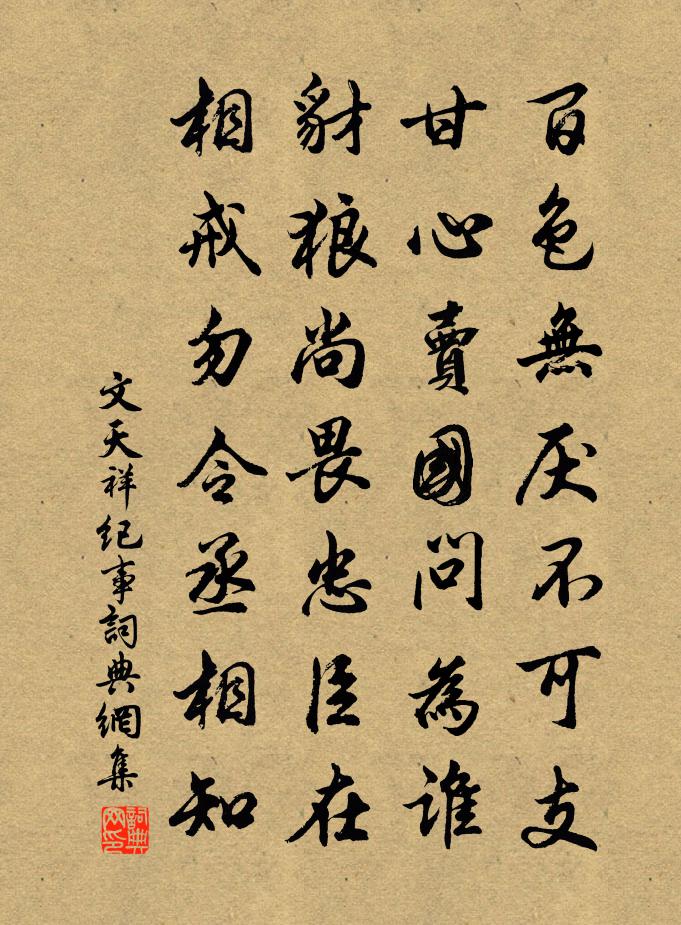 百色無厌不可支
甘心賣國問為誰
豺狼尚畏忠臣在
相戒勿令丞相知
文天祥纪事詞典網集
詞典網印